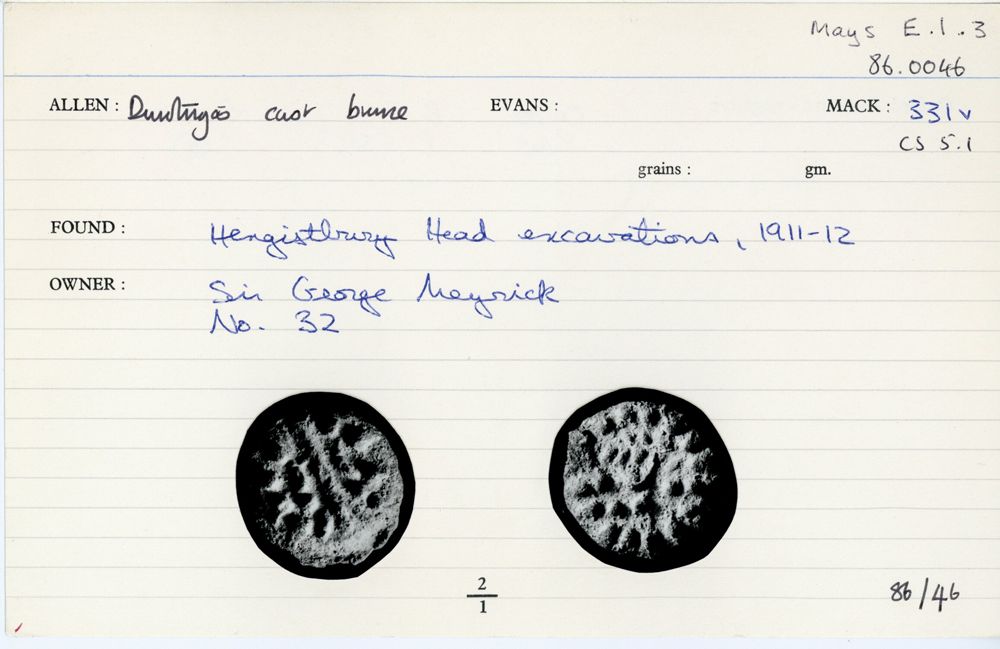 Mays E.1.3
86.0046
ALLEN : Durotrigas cast bronze EVANS : MACK : 331v
CS 5.1
grains : gm.
FOUND : Hengistbury Head excavations, 1911-12
OWNER : Sir George Meyrick
No. 32
2
1
86/46